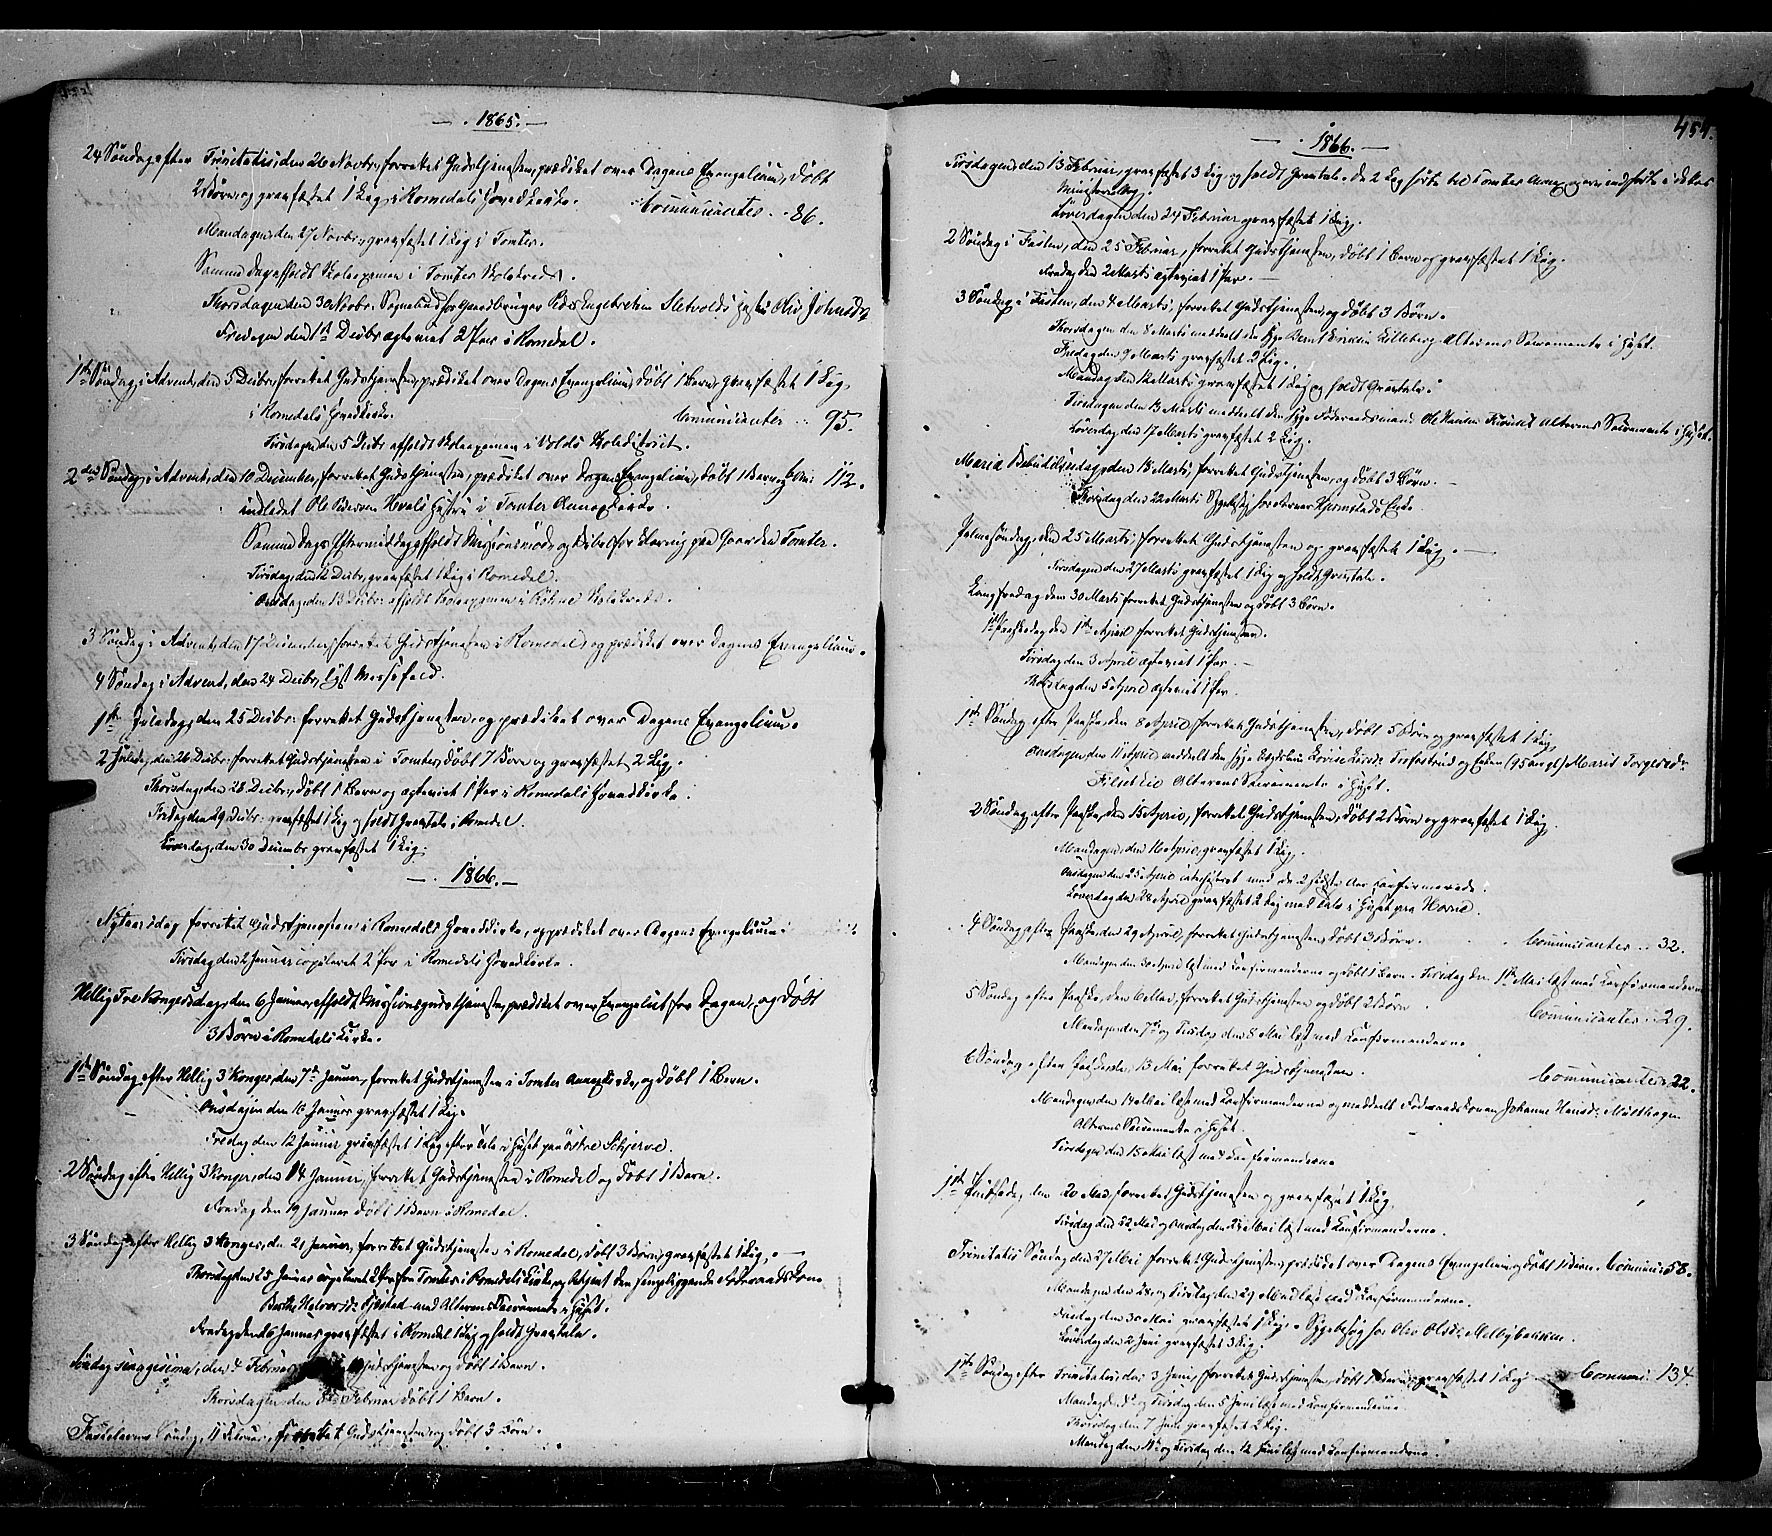 1865.
24 Søndag efter Trinitatis, den 26 Novbr, forrettet Gudstjenesten, prædiket over Dagens Evangelium, døbt
2 Børn og gravfæstet 1 Lig i Romedals Hovedkirke. Comunicanter 86.
Mandagen den 27 Novbr, gravfæstet 1 Lig i Tomter.
Samme Dag afholdt Skoleexamen i Tomter Skolekreds.
Thorsdagen den 30 Novbr. Sognebud for Gaardbruger Peder Engebretsen Sletvolds
Fredagen den 1ste Decbr ægteviet 2 Par i Romedal.
1ste Søndag i Advent, den 3 Decbr, forrettet Gudstjenesten, prædiket over Dagens Evangelium, døbt 1 Barn, gravfæstet 1 Lig,
i Romedals Hovedkirke. Comunicanter 95.
Tirsdagen den 5 Decbr afholdt Skoleexamen i Volds Skoledistrict.
2den Søndag i Advent, den 10 December, forrettet Gudstjenesten, prædiket over Dagens Evangelium, døbt 1 Barn og Com: 112.
indledet Ole Pedersen Hvals Hustru i Tomter Annexkirke.
Samme Dags Eftermiddag afholdt Missionsmøde og paa Gaarden Tomter.
Tirsdag den 12 Decbr, gravfæstet 1 Lig i Romedal.
Onsdagen den 13 Decbr afholdt Skoleexamen i Skolekreds.
3 Søndag i Advent, den 17 December, forrettet Gudstjenesten i Romedal, og prædiket over Dagens Evangelium.
4 Søndag i Advent, den 24 Decbr, lyst Messefald.
1ste Juledag, den 25 Decbr. forrettet Gudstjenesten, og prædiket over Dagens Evangelium.
2 Juledag, den 26 Decbr. forrettet Gudstjenesten i Tomter, døbt 7 Børn og gravfæstet 2 Lig.
Thorsdag den 28 Decbr, døbt 1 Barn og ægteviet 1 Par i Romedals Hovedkirke.
Fredag den 29 Decbr. gravfæstet 1 Lig og holdt Gravtale i Romedal.
Løverdag, den 30 December gravfæstet 1 Lig.
1866.
Nytaarsdag forrettet Gudstjenesten i Romedals Hovedkirke, og prædiket over Dagens Evangelium.
Tirsdag den 2 Januar copuleret 2 Par i Romedals Hovedkirke.
Hellig Tre Kongersdag, den 6 Januar, afholdt Missionsgudstjeneste, prædiket over Evangeliet for Dagen, og døbt
3 Børn i Romedals Kirke.
1ste Søndag efter Hellig 3 Konger, den 7de Januar, forrettet Gudstjenesten i Tomter Annexkirke, og døbt 1 Barn.
Onsdagen den 10 Januar gravfæstet 1 Lig.
Fredag den 12 Januar gravfæstet 1 Lig efter Tale i Huset paa østre Schjerve.
2 Søndag efter Hellig 3 Konger, den 14 Januar, forrettet Gudstjenesten i Romedal og døbt 1 Barn.
Fredag den 19 Januar døbt 1 Barn i Romedal.
3 Søndag efter Hellig 3 Konger, den 21 Januar, forrettet Gudstjenesten i Romedal, døbt 3 Børn, gravfæstet 1 Lig.
Thorsdag den 25 Januar copuleret 2 Par fra Tomter i Romedals Kirke og betjent den sengeliggende Føderaadskone
Berthe Halvorsdr. Kjøstad med Alterens Sacramente i Huset.
Fredag den 26 Januar gravfæstet i Romedal 1 Lig og holdt Gravtale.
Søndag sexagesima, den 4 Februar Gudstjenesten og døbt 1 Barn.
Thorsdagen den 8de Februar døbt 1 Barn.
Fastelavens Søndag, 11 Februar, forrettet Gudstjenesten, og døbt 3 Børn.
454.
1866.
Tirsdagen den 13 Februar, gravfæstet 3 Lig og holdt Gravtale. De 2 Lig hørte til Tomter Annex og ere indførte i dettes
Ministerialbog.
Løverdagen den 24 Februar gravfæstet 1 Lig.
2 Søndag i Fasten, den 25 Februar, forrettet Gudstjenesten, døbt 1 Barn og gravfæstet 1 Lig.
Fredag den 2 Marts ægteviet 1 Par.
3 Søndag i Fasten, den 4 Marts, forrettet Gudstjenesten, og døbt 3 Børn.
Thorsdagen den 8 Marts meddelt den syge Bernt Lilleberg Alterens Sacramente i Huset.
Fredag den 9 Marts gravfæstet 2 Lig.
Mandag den 12 Marts gravfæstet 1 Lig og holdt Gravtale.
Tirsdagen den 13 Marts meddelt den syge Føderaadsmand Ole Hansen Alterens Sacramente i Huset.
Løverdag den 17 Marts gravfæstet 2 Lig.
Maria Bebudelsesdag, den 18 Marts, forrettet Gudstjenesten, og døbt 3 Børn.
Thorsdag den 22 Marts Sygebesøg hos Farver Hjermstads Enke.
Palmesøndag, den 25 Marts, forrettet Gudstjenesten og gravfæstet 1 Lig.
Tirsdagen den 27 Marts gravfæstet 1 Lig og holdt Gravtale.
Langfredag den 30 Marts forrettet Gudstjenesten og døbt 3 Børn.
1ste Paaskedag den 1ste April forrettet Gudstjenesten.
Tirsdag den 3 April ægteviet 1 Par.
Thorsdag den 5 April ægteviet 1 Par.
1ste Søndag efter Paaske, den 8 April, forrettet Gudstjenesten, døbt 5 Børn og gravfæstet 1 Lig.
Onsdagen den 11 April meddelt den syge Lovise Larsdr. og Enken (95 aargl) Marit Torgersdr
Alterens Sacramente i Huset.
2 Søndag efter Paaske, den 15 April, forrettet Gudstjenesten, døbt 2 Børn og gravfæstet 1 Lig.
Mandagen, den 16 April, gravfæstet 1 Lig.
Onsdagen den 25 April catechiseret med de 2 sidste Aar Confirmerede.
Løverdag den 28 April gravfæstet 2 Lig med Tale i Huset paa Horne.
4 Søndag efter Paaske den 29 April, forrettet Gudstjenesten, døbt 3 Børn. Comunicanter 32.
Mandagen den 30 April læst med Confirmanderne og døbt 1 Barn. Tirsdag den 1ste Mai læst med Confirmanderne
5 Søndag efter Paaske, den 6 Mai, forrettet Gudstjenesten og døbt 2 Børn. Comunicanter 29.
Mandagen den 7de og Tirsdag den 8 Mai læst med Confirmanderne
6 Søndag efter Paaske den 13 Mai forrettet Gudstjenesten. Comunicanter 22.
Mandagen den 14 Mai læst med Confirmanderne og meddelt Føderaadskonen Johanne Hansdr. Mølthagen
Alterens Sacramente i Huset.
Tirsdagen den 15 Mai læst med Confirmanderne
1ste Pintsedag den 20 Mai, forrettet Gudstjenesten og gravfæstet 1 Lig.
Tirsdag den 22 Mai og Onsdag den 23 Mai læst med Confirmanderne.
Trinitatis Søndag den 27 Mai forrettet Gudstjenesten, prædiket over Dagens Evangelium og døbt 1 Barn. Comunic: 58.
Mandagen den 28 og Tirsdag den 29 Mai læst med Confirmanderne.
Onsdag den 30 Mai gravfæstet 1 Lig. Sygebesøg hos Olea Olsdr. Melbybakken.
Løverdag den 2 Juni gravfæstet 3 Lig.
1ste Søndag efter Trinitatis den 3 Juni, forrettet Gudstjenesten, døbt 1 Barn, gravfæstet 1 Lig. Comuni: 134.
Mandag den 4 og Tirsdag den 5 Juni læst med Confirmanderne.
Thorsdag den 7 Juni gravfæstet 2 Lig.
Mandag den 11 og Tirsdag den 12 Juni læst med Confirmanderne.